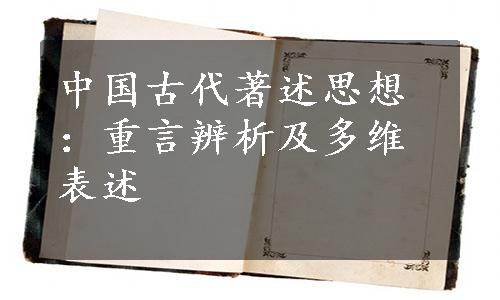 中国古代著述思想
：重言辨析及多维
表述